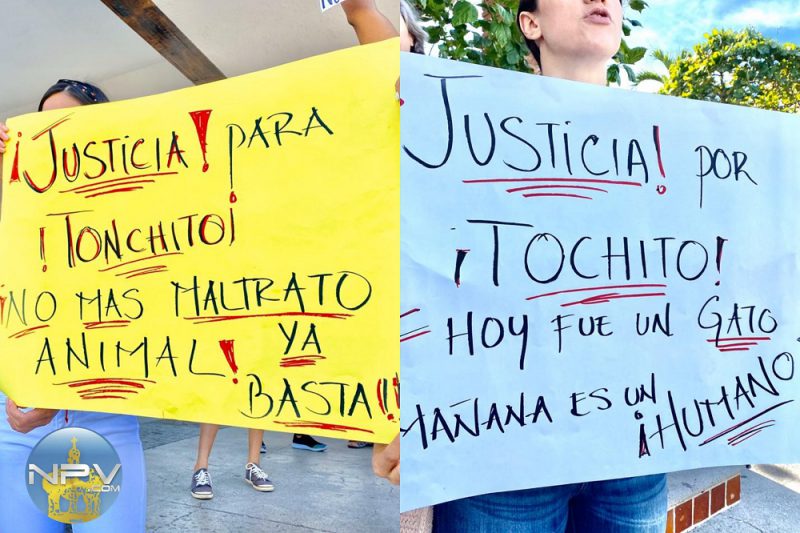 ¡JUSTICIA! PARA
¡TONCHITO!
¡NO MAS MALTRATO
ANIMAL! YA
BASTA!!
¡JUSTICIA! POR
¡TOCHITO!
HOY FUE UN GATO
MAÑANA ES UN
¡HUMANO
NPV